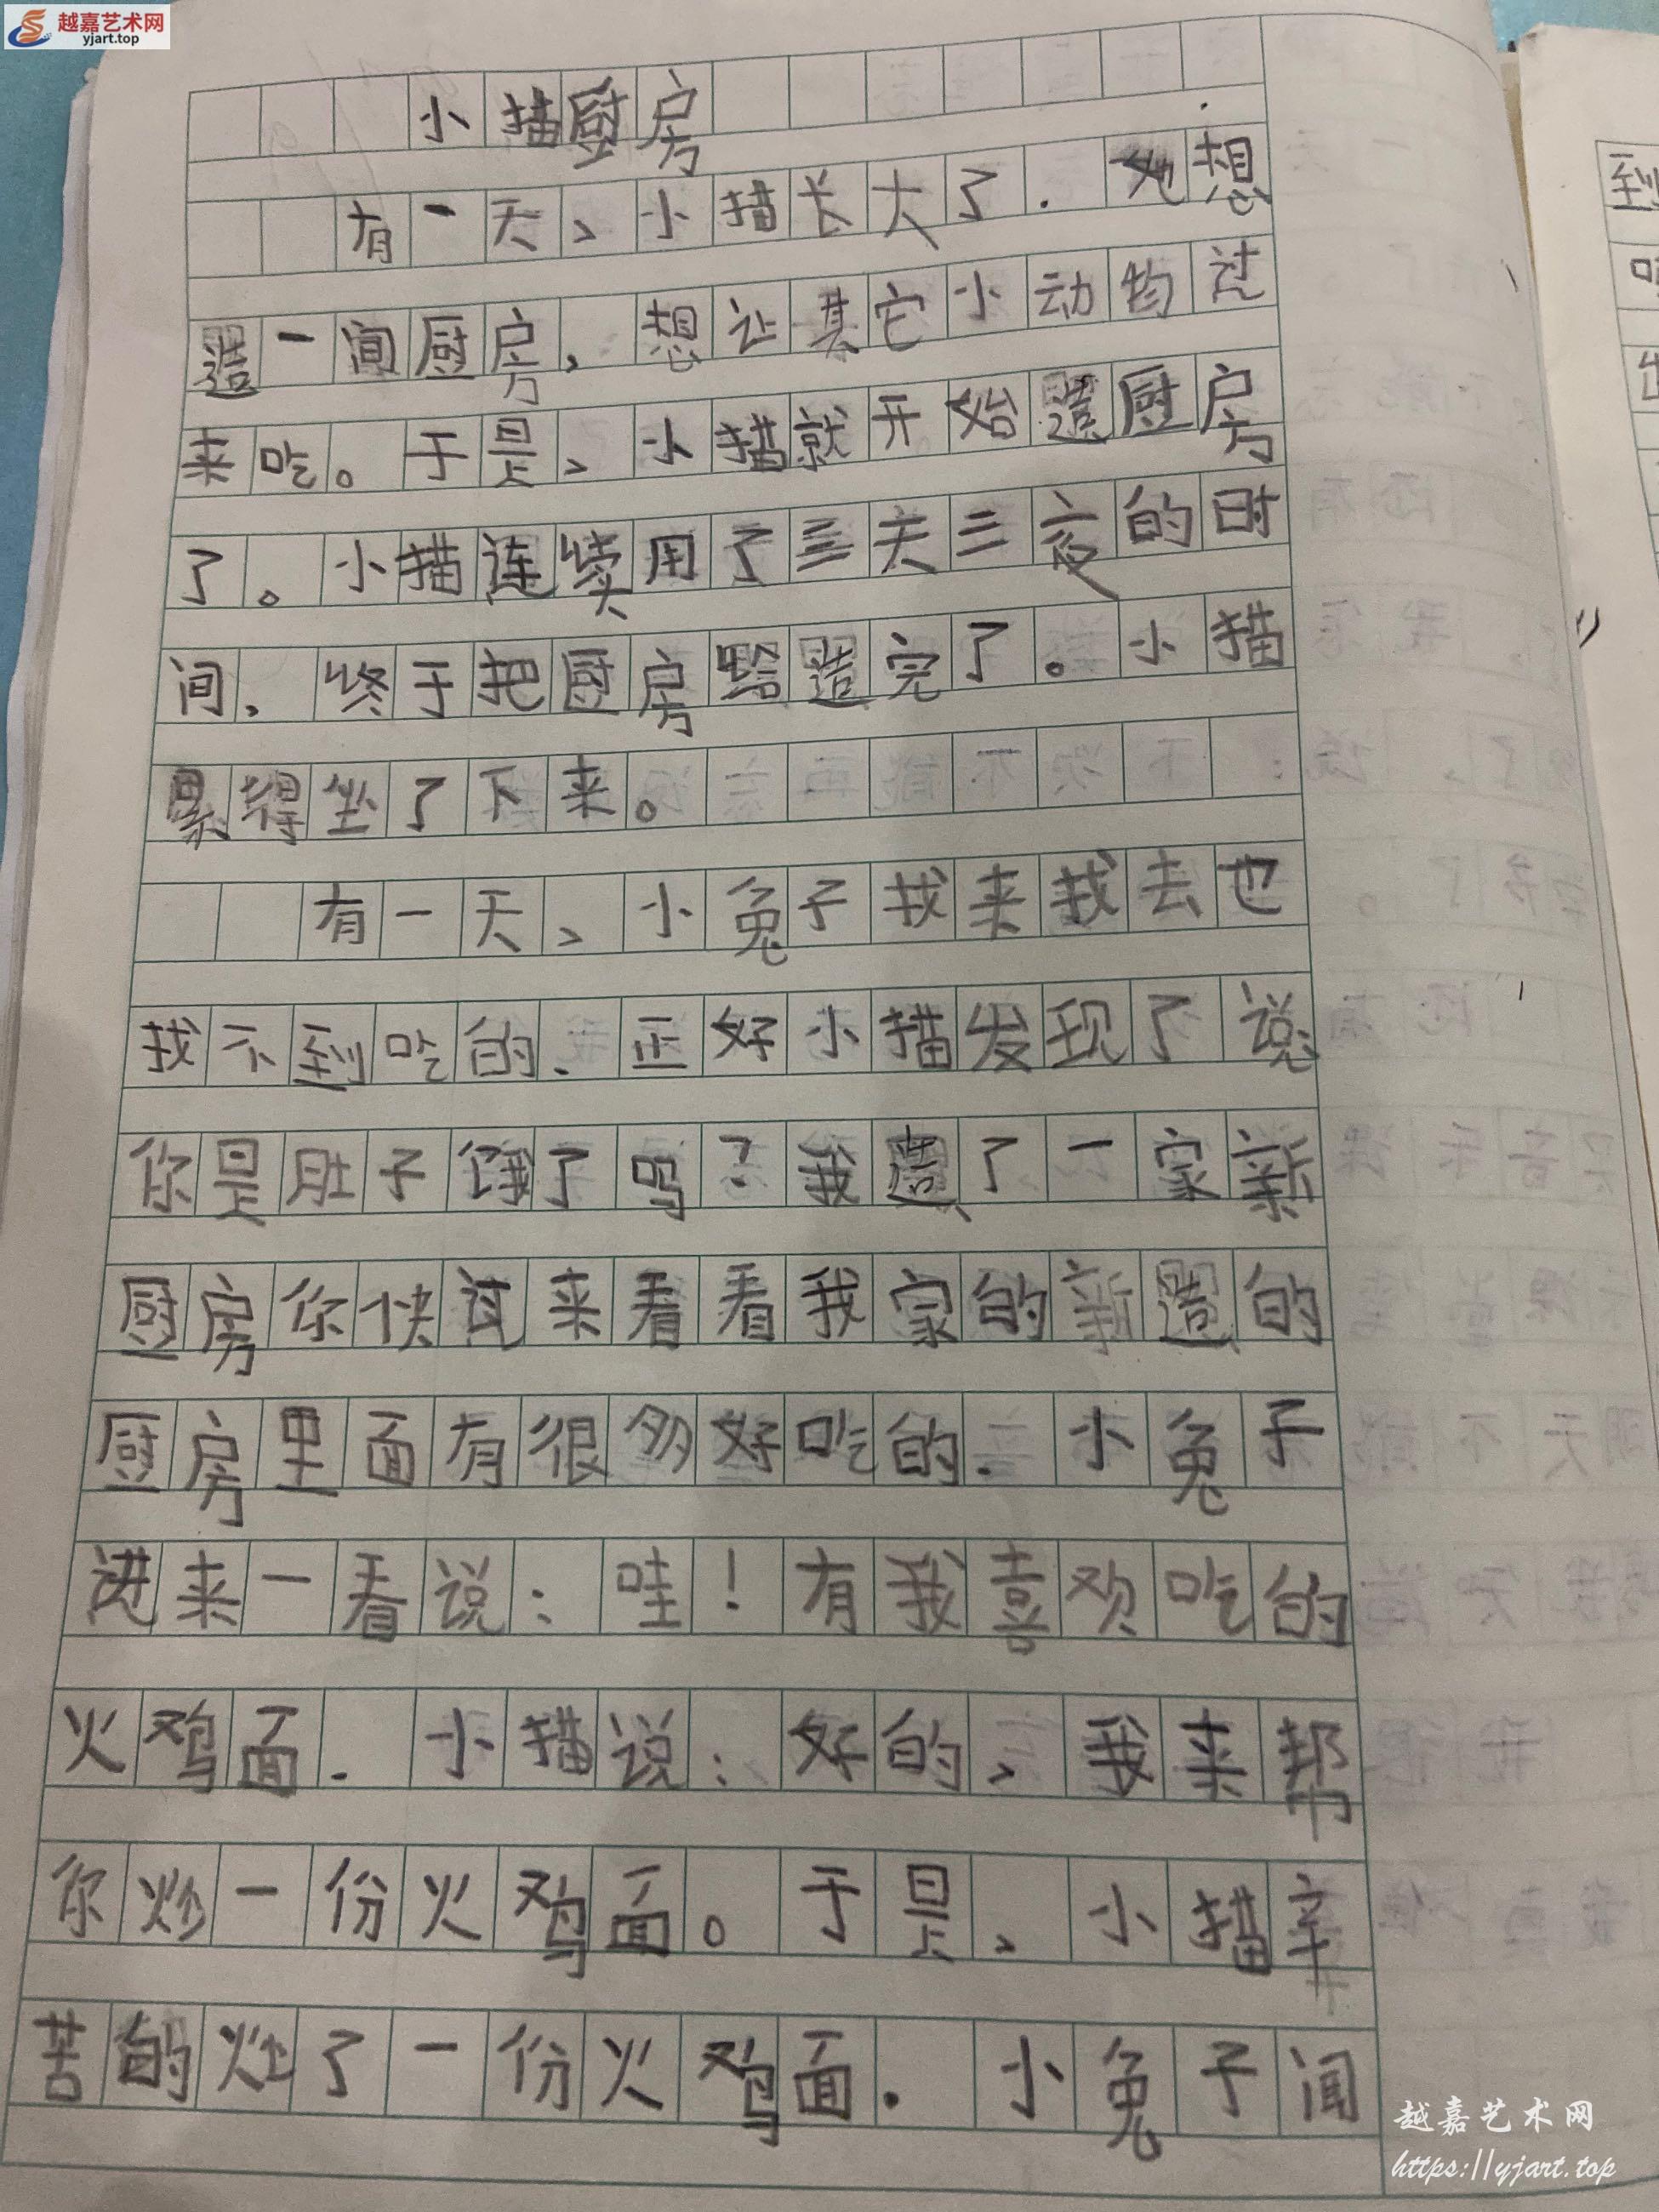 越嘉艺术网
yjart.top
小猫厨房
有一天、小猫长大了.她想
造一间厨房,想让其它小动物过
来吃。于是、小猫就开始造厨房
了。小猫连续用了三天三夜的时
间,终于把厨房造完了。小猫
累得坐了下来。
有一天、小兔子找来找去也
找不到吃的.正好小猫发现了说
你是肚子饿了吗?我造了一家新
厨房你快过来看看我家的新造的
厨房里面有很多好吃的.小兔子
进来一看说:哇!有我喜欢吃的
火鸡面.小猫说:好的、我来帮
你炒一份火鸡面。于是、小猫辛
苦的灶了一份火鸡面.小兔子闻
越嘉艺术网
https://yjart.top